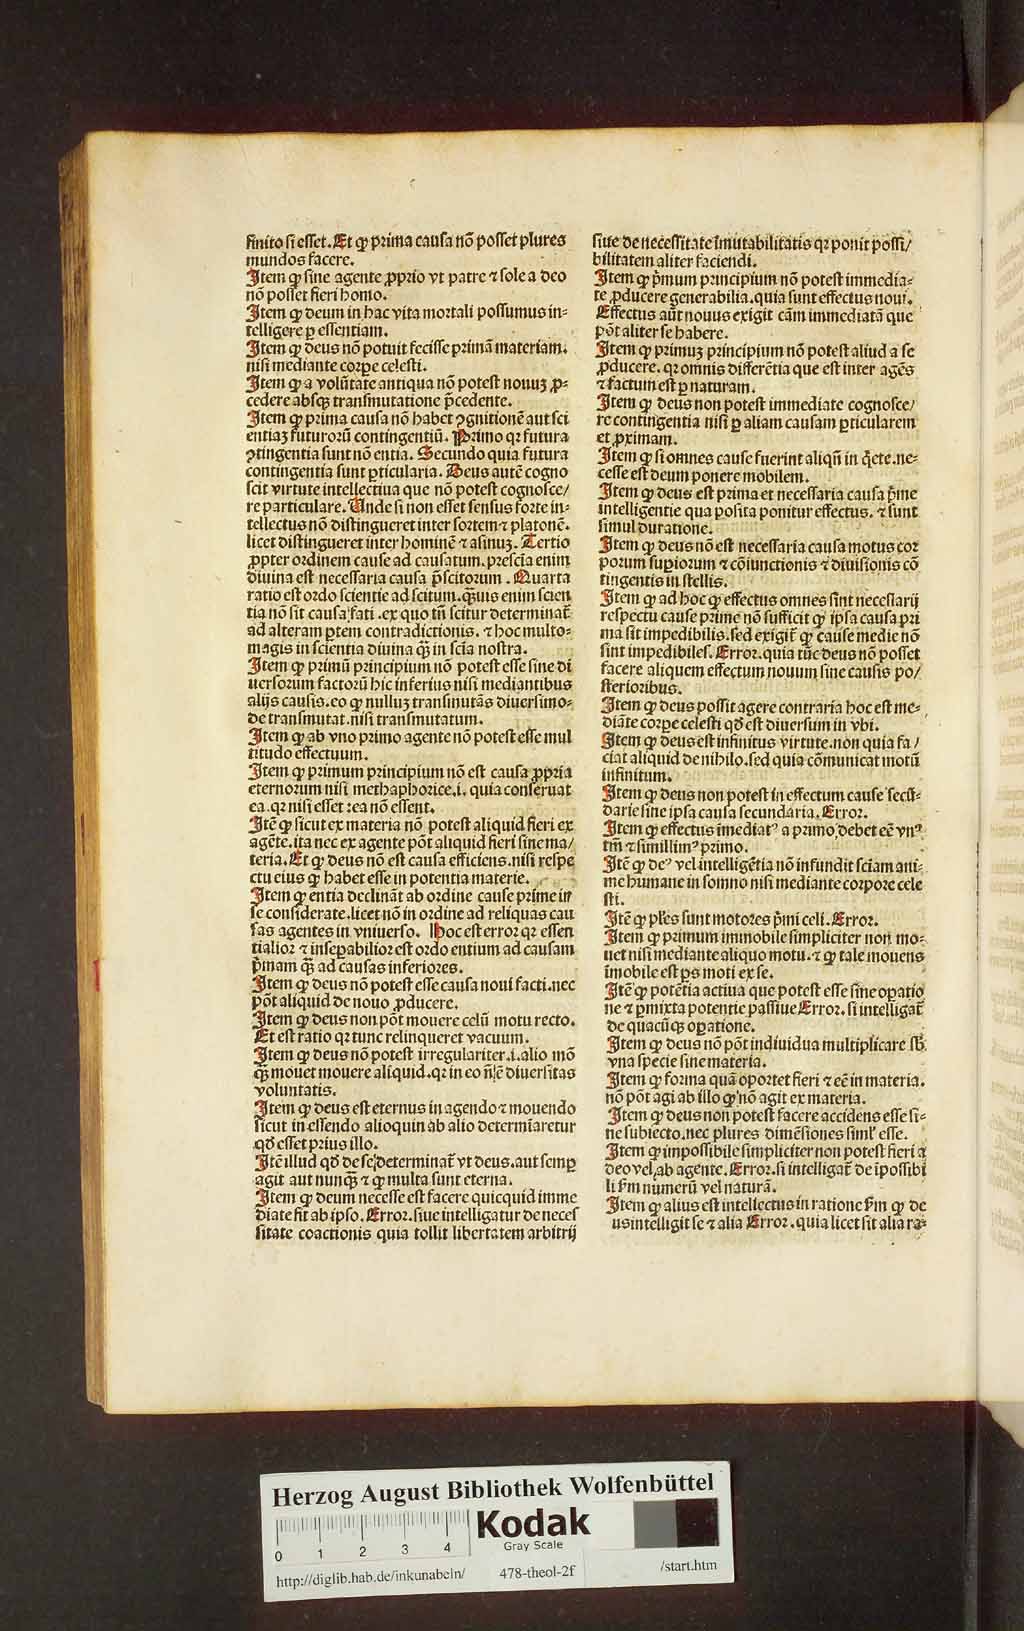 finito si esset. Et ꝙ prima causa nō posset plures
mundos facere.
Item ꝙ sine agente ꝓprio vt patre ⁊ sole a deo
nō posset fieri homo.
Item ꝙ deum in hac vita mortali possumus in⸗
telligere ꝑ essentiam.
Item ꝙ deus nō potuit fecisse primā materiam.
nisi mediante corpe celesti.
Item ꝙ a volūtate antiqua nō potest nouuꝫ ꝓ⸗
cedere absqꝫ transmutatione p̄cedente.
Item ꝙ prima causa nō habet ꝯgnitionē aut sci
entiaꝫ futurorū contingentiū. Primo qꝛ futura
ꝯtingentia sunt nō entia. Secundo quia futura
contingentia sunt ꝑticularia. Deus autē cogno
scit virtute intellectiua que nō potest cognosce/
re particulare. Unde si non esset sensus forte in⸗
tellectus nō distingueret inter sortem ⁊ platonē.
licet distingueret inter hominē ⁊ asinuꝫ. Tertio
ꝓpter ordinem cause ad causatum. prescīa enim
diuina est necessaria causa p̄scitorum. Quarta
ratio est ordo scientie ad scitum. q̄uis enim scien
tia nō sit causa fati. ex quo tn̄ scitur determinat̄
ad alteram ꝑtem contradictionis. ⁊ hoc multo⸗
magis in scientia diuina q̄ in scīa nostra.
Item ꝙ primū principium nō potest esse sine di
uersorum factorū hic inferius nisi mediantibus
alijs causis. eo ꝙ nulluꝫ transmutās diuersimo⸗
de transmutat. nisi transmutatum.
Item ꝙ ab vno primo agente nō potest esse mul
titudo effectuum.
Item ꝙ primum principium nō est causa ꝓpria
eternorum nisi methaphorice. i. quia conseruat
ea. qꝛ nisi esset ea nō essent.
Itē ꝙ sicut ex materia nō potest aliquid fieri ex
agēte. ita nec ex agente pōt aliquid fieri sine ma/
teria. Et ꝙ deus nō est causa efficiens. nisi respe
ctu eius ꝙ habet esse in potentia materie.
Item ꝙ entia declināt ab ordine cause prime in
se considerate. licet nō in ordine ad reliquas cau
sas agentes in vniuerso. Hoc est error qꝛ essen
tialior ⁊ insepabilior est ordo entium ad causam
p̄mam q̄ ad causas inferiores.
Item ꝙ deus nō potest esse causa noui facti. nec
pōt aliquid de nouo ꝓducere.
Item ꝙ deus non pōt mouere celū motu recto.
Et est ratio qꝛ tunc relinqueret vacuum.
Item ꝙ deus nō potest irregulariter. i. alio mō
q̄ mouet mouere aliquid. qꝛ in eo nō ē diuersitas
voluntatis.
Item ꝙ deus est eternus in agendo ⁊ mouendo
sicut in essendo alioquin ab alio determīaretur
qd̄ esset prius illo.
Itē illud qd̄ de se determinat̄ vt deus. aut semꝑ
agit aut nunq̄ ⁊ ꝙ multa sunt eterna.
Item ꝙ deum necesse est facere quicquid imme
diate fit ab ipso. Error. siue intelligatur de neces
sitate coactionis quia tollit libertatem arbitrij
siue de necessitate īmutabilitatis qꝛ ponit possi/
bilitatem aliter faciendi.
Item ꝙ p̄mum principium nō potest immedia⸗
te ꝓducere generabilia. quia sunt effectus noui.
Effectus aūt nouus exigit cām immediatā que
pōt aliter se habere.
Item ꝙ primuꝫ principium nō potest aliud a se
ꝓducere. qꝛ omnis differētia que est inter agēs
⁊ factum est ꝑ naturam.
Item ꝙ deus non potest immediate cognosce/
re contingentia nisi ꝑ aliam causam ꝑticularem
et ꝓximam.
Item ꝙ si omnes cause fuerint aliqn̄ in q̇ete. ne⸗
cesse est deum ponere mobilem.
Item ꝙ deus est prima et necessaria causa p̄me
intelligentie qua posita ponitur effectus. ⁊ sunt
simul duratione.
Item ꝙ deus nō est necessaria causa motus cor
porum suꝑiorum ⁊ cōiunctionis ⁊ diuisionis cō
tingentis in stellis.
Item ꝙ ad hoc ꝙ effectus omnes sint necessarij
respectu cause prime nō sufficit ꝙ ipsa causa pri
ma sit impedibilis. sed exigit̄ ꝙ cause medie nō
sint impedibiles. Error. quia tūc deus nō posset
facere aliquem effectum nouum sine causis po/
sterioribus.
Item ꝙ deus possit agere contraria hoc est me⸗
diāte corꝑe celesti qd̄ est diuersum in vbi.
Item ꝙ deus est infinitus virtute. non quia fa/
ciat aliquid de nihilo. sed quia cōmunicat motū
infinitum.
Item ꝙ deus non potest in effectum cause secū⸗
darie sine ipsa causa secundaria. Error.
Item ꝙ effectus imediatꝰ a primo debet eē vnꝰ
tm̄ ⁊ simillimꝰ primo.
Itē ꝙ deꝰ vel intelligētia nō infundit sciam ani⸗
me humane in somno nisi mediante corpore cele
sti.
Itē ꝙ pl̄es sunt motores p̄mi celi. Error.
Item ꝙ primum immobile simpliciter non mo⸗
uet nisi mediante aliquo motu. ⁊ ꝙ tale mouens
īmobile est ps̄ moti ex se.
Itē ꝙ potētia actiua que potest esse sine oꝑatio
ne ⁊ ꝑmixta potentie passiue Error. si intelligat̄
de quacūqꝫ oꝑatione.
Item ꝙ deus nō pōt indiuidua multiplicare sb̄
vna specie sine materia.
Item ꝙ forma quā oportet fieri ⁊ eē in materia.
nō pōt agi ab illo ꝙ nō agit ex materia.
Item ꝙ deus non potest facere accidens esse si⸗
ne subiecto. nec plures dimēsiones siml̄ esse.
Item ꝙ impossibile simpliciter non potest fieri a
deo vel ab agente. Error. si intelligat̄ de īpossibi
li ẜm numerū vel naturā.
Item ꝙ alius est intellectus in ratione ẜm ꝙ de
us intelligit se ⁊ alia Error. quia licet sit alia ra⸗
Herzog August Bibliothek Wolfenbüttel
Kodak
Gray Scale
0 1 2 3 4
http://diglib.hab.de/inkunabeln/ 478-theol-2f /start.htm